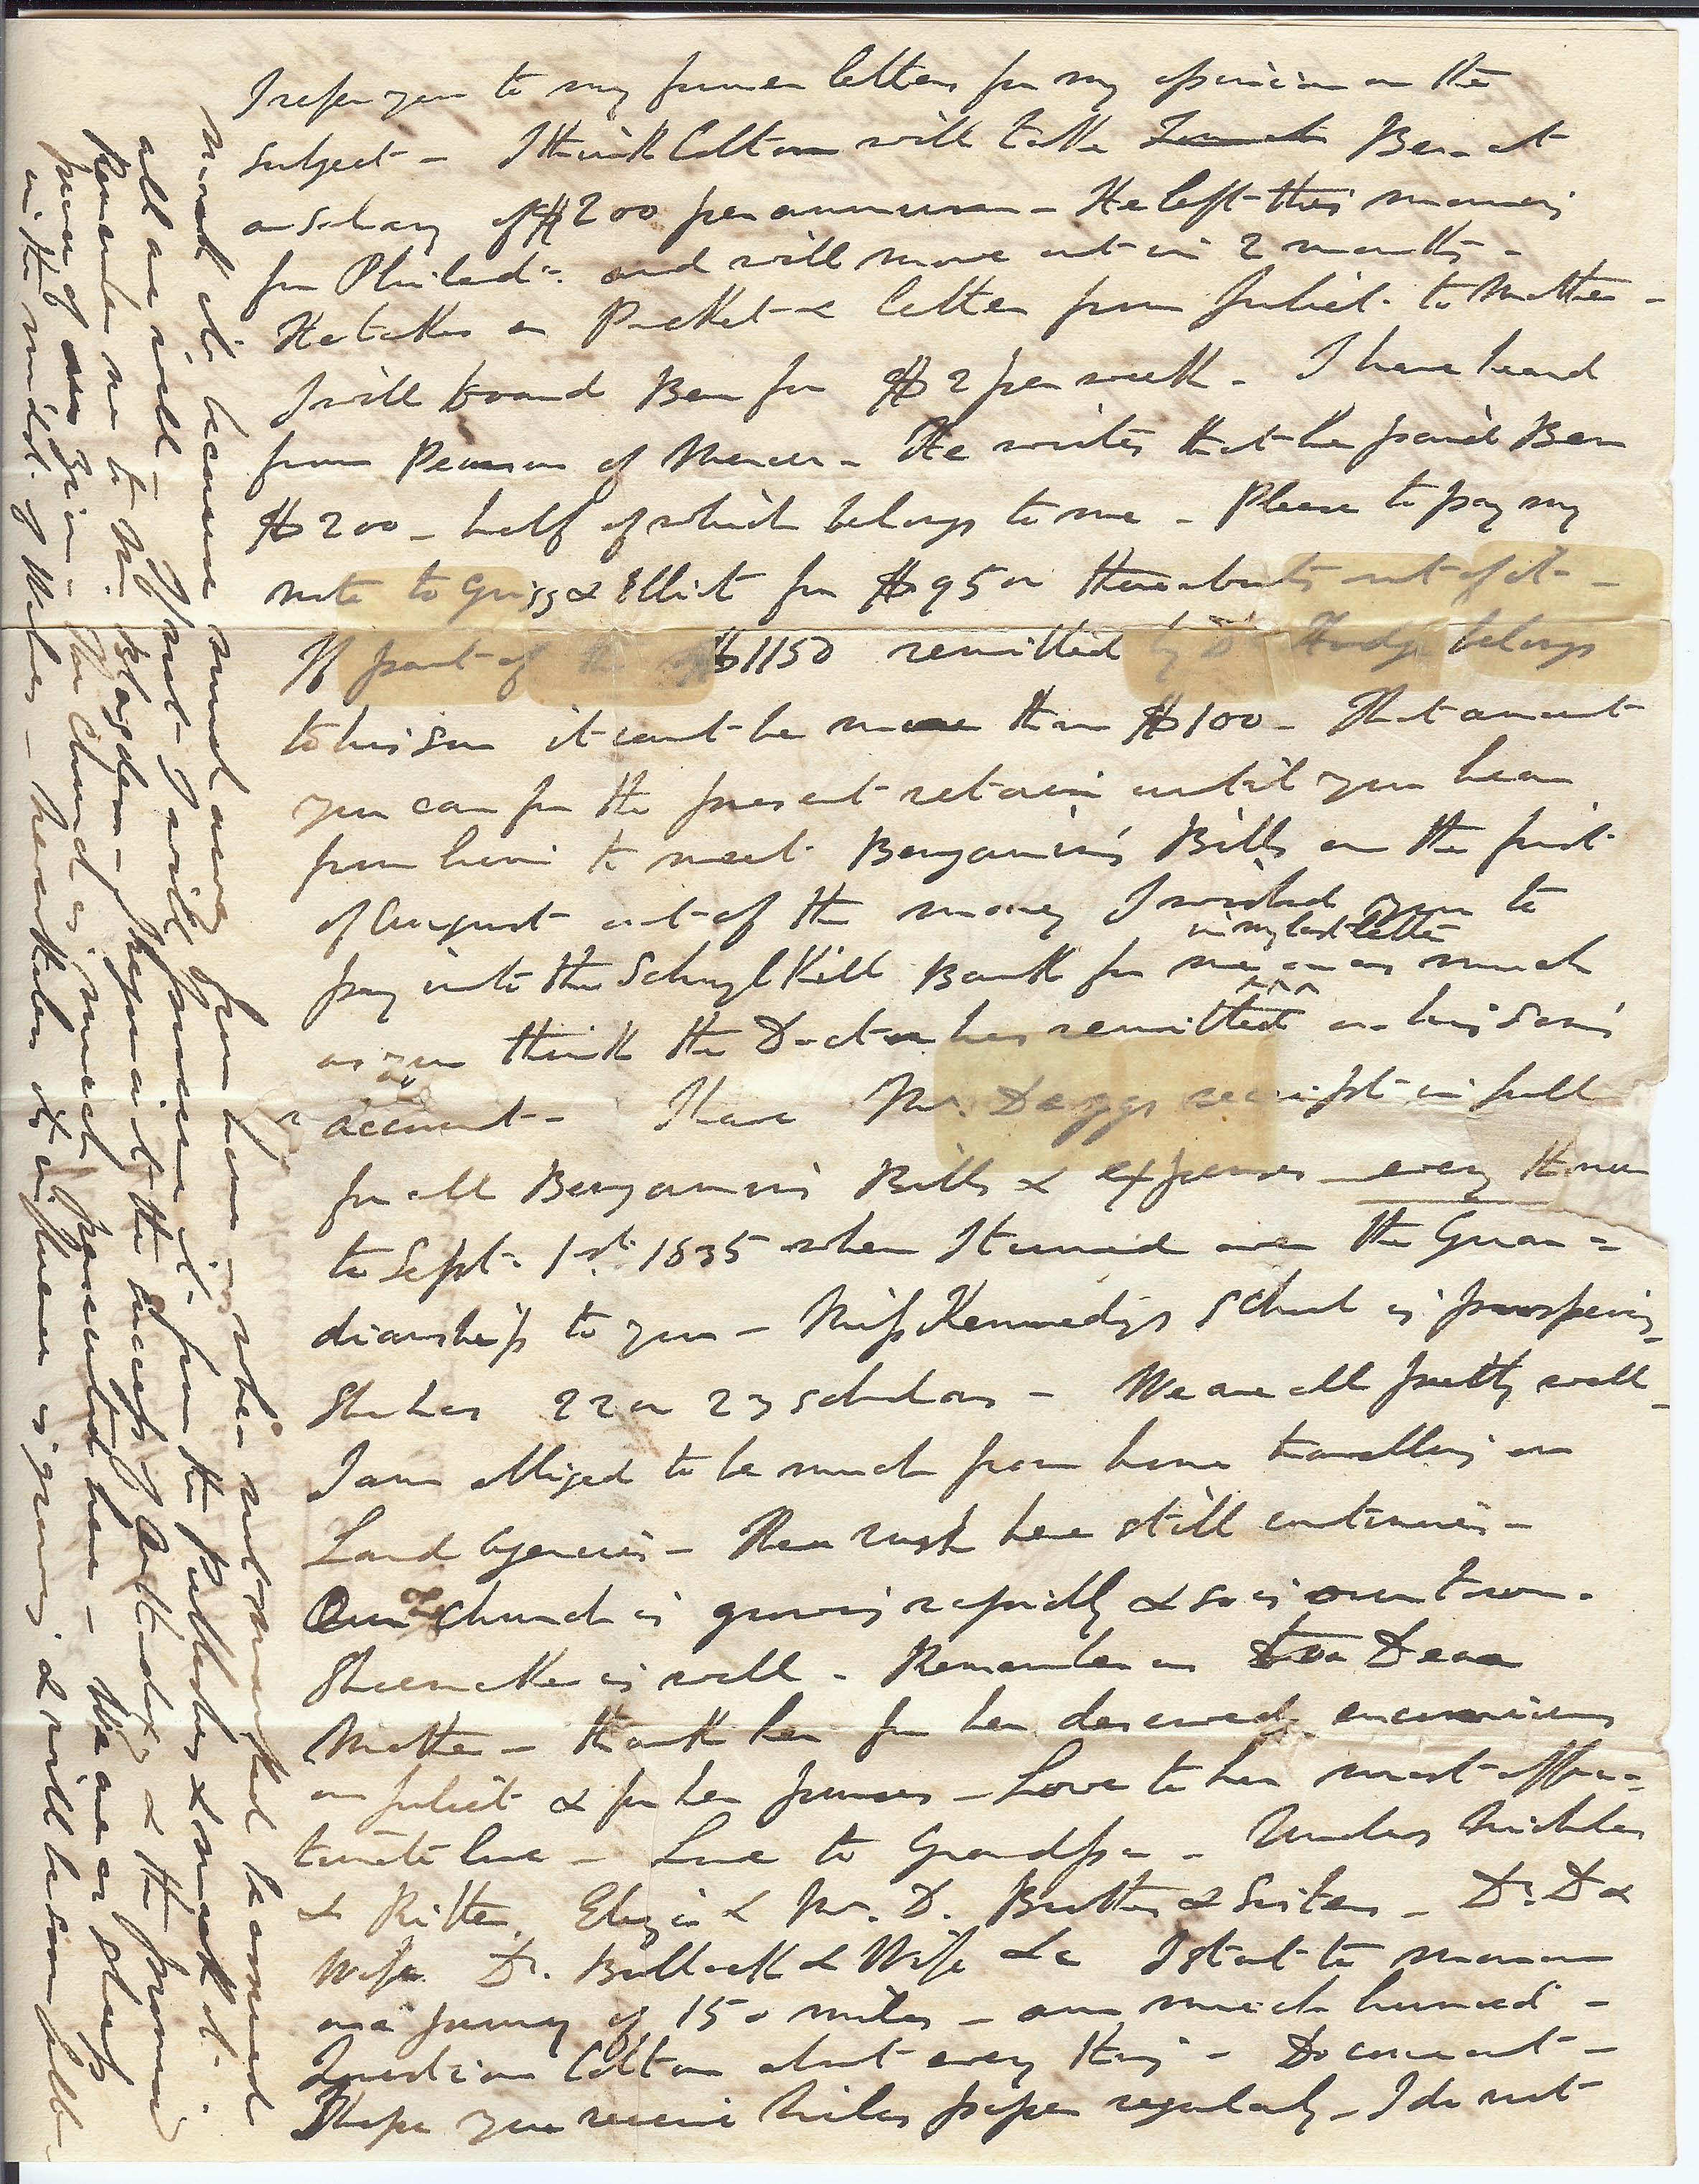 I refer you to my former letters for my opinion on the
subject - I think Colton will take Ben at
a salary of $200 per annum - He left this morning
for Philada. and will move out in 2 months -
He takes a Packet & letter from Juliet to Mother -
I will board Ben for $2 per week - I have heard
from Pearson of Mercer - He writes that he paid Ben
$200 - half of which belongs to me - Please to pay my
note to Grigg & Elliot for $95 or thereabouts out of it -
If part of the $1150 remitted by Dr. Hodge belongs
to his son it cant be more than $100 - That amount
you can for the present retain until you hear
from him to meet Benjamin's Bills on the first
of August out of the money I wished you to
in my last letter
pay into the Schuylkill Bank for me or as much
as you think the Doctor has remitted on his Son's
account - I have Mr. Daggs receipt in full
for all Benjamin's Bills & expenses - every thing
to Sept. 1st. 1835 when I turned over the Guar=
dianship to you - Miss Kennedys School is prospering -
She has 22 or 23 scholars - We are all pretty well -
I am obliged to be much from home travelling on
Land Agencies - The rush here still continues -
Our Church is growing rapidly & so is our town.
is well - Remember us to Dear
Mother - thank her for her deserved encomiums
on Juliet & for her - Love to her most affec=
tionate love - Love to Grandpa - Uncles Nicholas
& Ritter, Eliza & Mr. D. Brothers & Sisters - Dr. D &
Wife Dr. Bullock & Wife &c I start to morrow
on a journey of 150 miles - am much hurried -
Question Colton about every thing - Do come out -
I hope you receive Niles paper regularly - I do not
want it because much away from home - when not wanted be assured
all are well - If not I will it from the Publisher & it -
Remember me to Mr. Blagden - I rejoice at the success of & the
of our Zion - Our Church is much persecuted here - We are as sheep
in the midst of Wolves - nevertheless its influence is growing & will be soon felt -